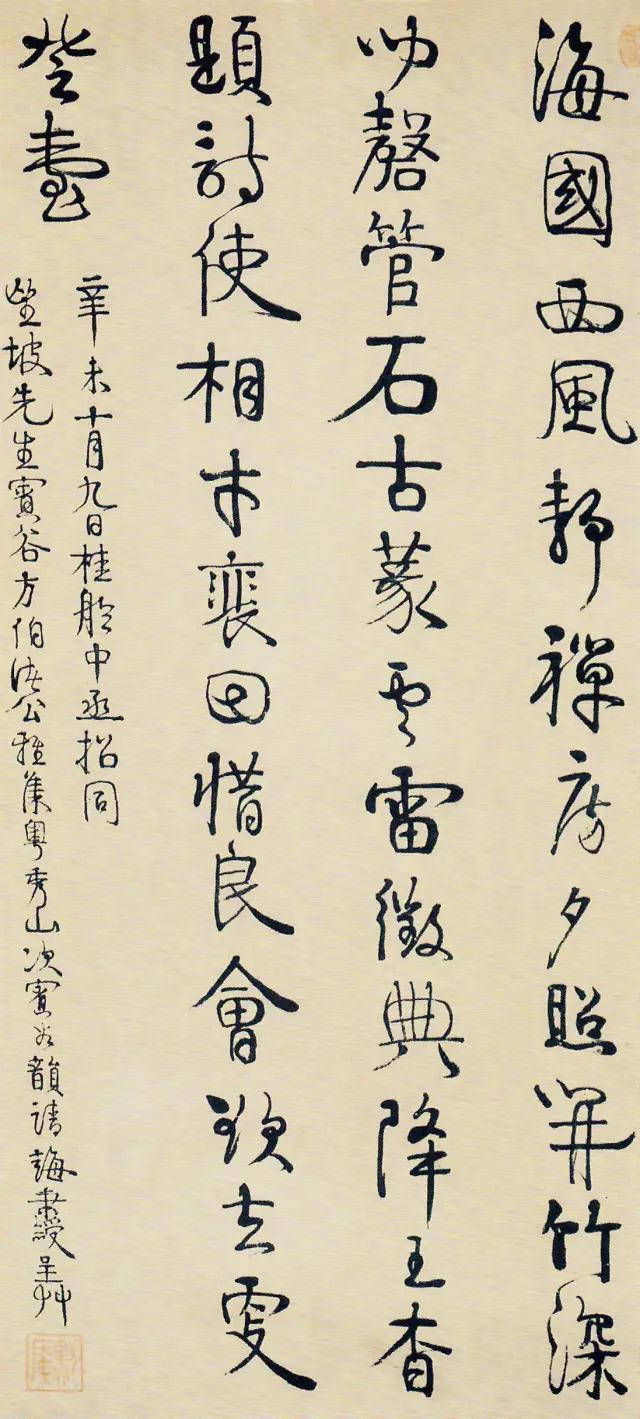 海國西風靜禪房夕照開竹深
磬管石古篆雲雷徵典降王杳
題詩使相才裴回惜良會欲去更
登臺
辛未十月九日桂舲中丞招同
望坡先生賓谷方伯諸公雅集粤秀山次賓谷韻請誨秉綬呈艸